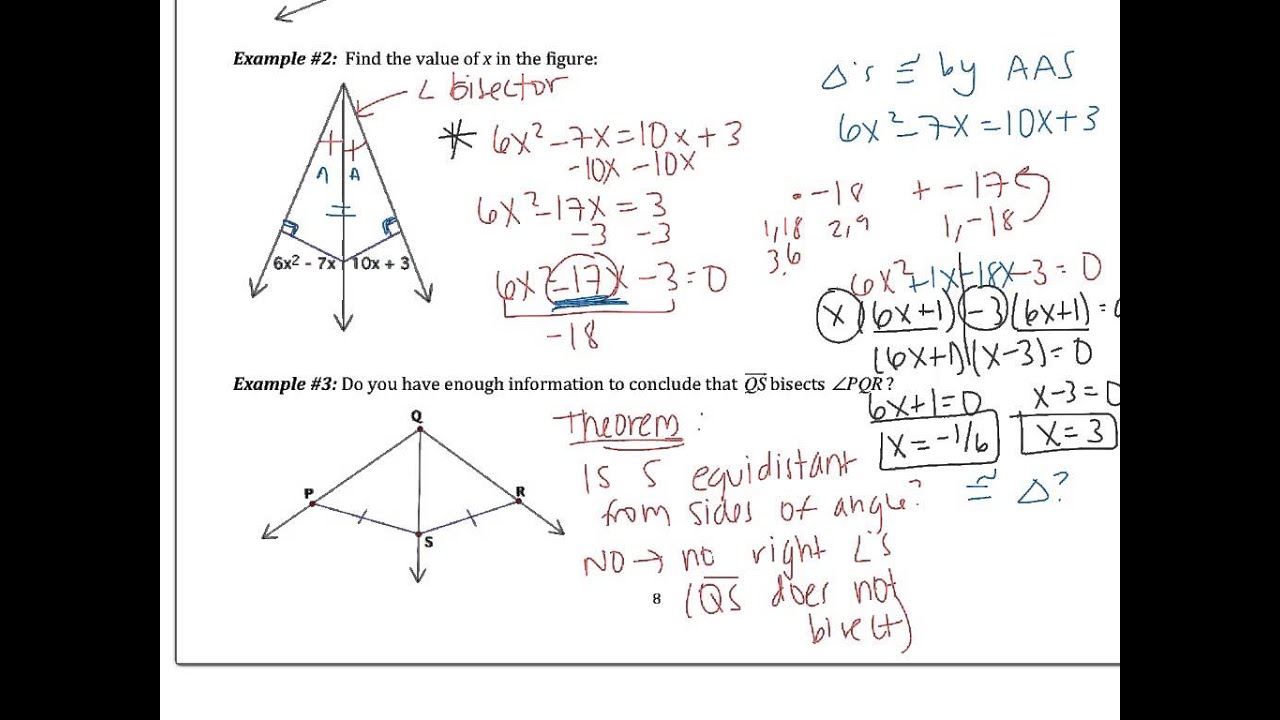 Example #2: Find the value of x in the figure:
∠ bisector
A A
6x² - 7x 10x + 3
* 6x² - 7x = 10x + 3
-10x -10x
6x² - 17x = 3
-3 -3
6x² - 17x - 3 = 0
-18
Δ's ≅ by AAS
6x² - 7x = 10x + 3
· -18 + -17
1,18 2,9 1,-18
3,6
6x² + 1x - 18x - 3 = 0
x(6x+1) -3(6x+1) = 0
(6x+1)(x-3) = 0
6x+1=0 x-3=0
x = -1/6 x = 3
Example #3: Do you have enough information to conclude that QS bisects ∠PQR?
Q
P
R
S
Theorem:
Is S equidistant
from sides of angle? ≅ Δ?
NO → no right ∠'s
(QS does not
bisect)
8